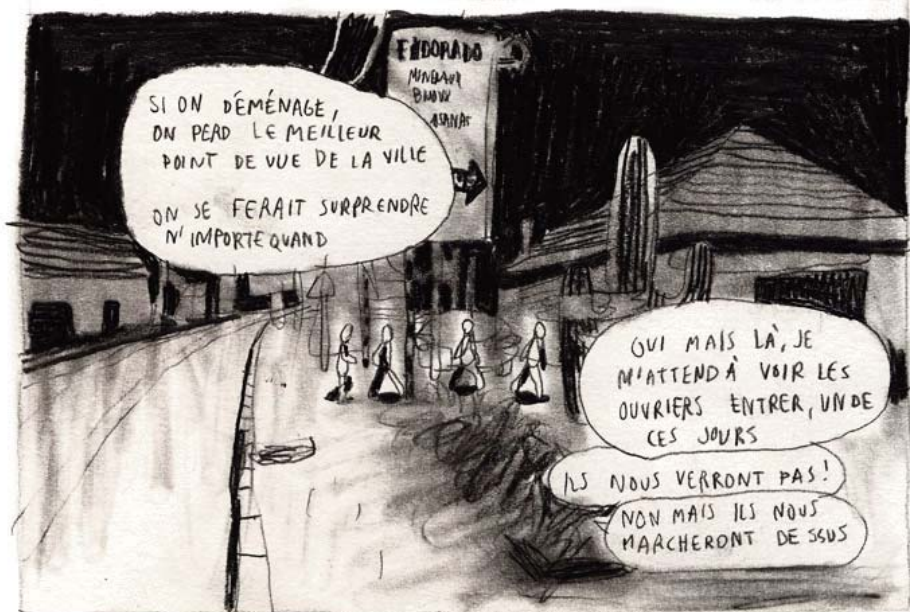 ELDORADO
SI ON DÉMÉNAGE,
ON PERD LE MEILLEUR
POINT DE VUE DE LA VILLE
ON SE FERAIT SURPRENDRE
N'IMPORTE QUAND
OUI MAIS LÀ, JE
M'ATTEND À VOIR LES
OUVRIERS ENTRER, UN DE
CES JOURS
ILS NOUS VERRONT PAS!
NON MAIS ILS NOUS
MARCHERONT DESSUS